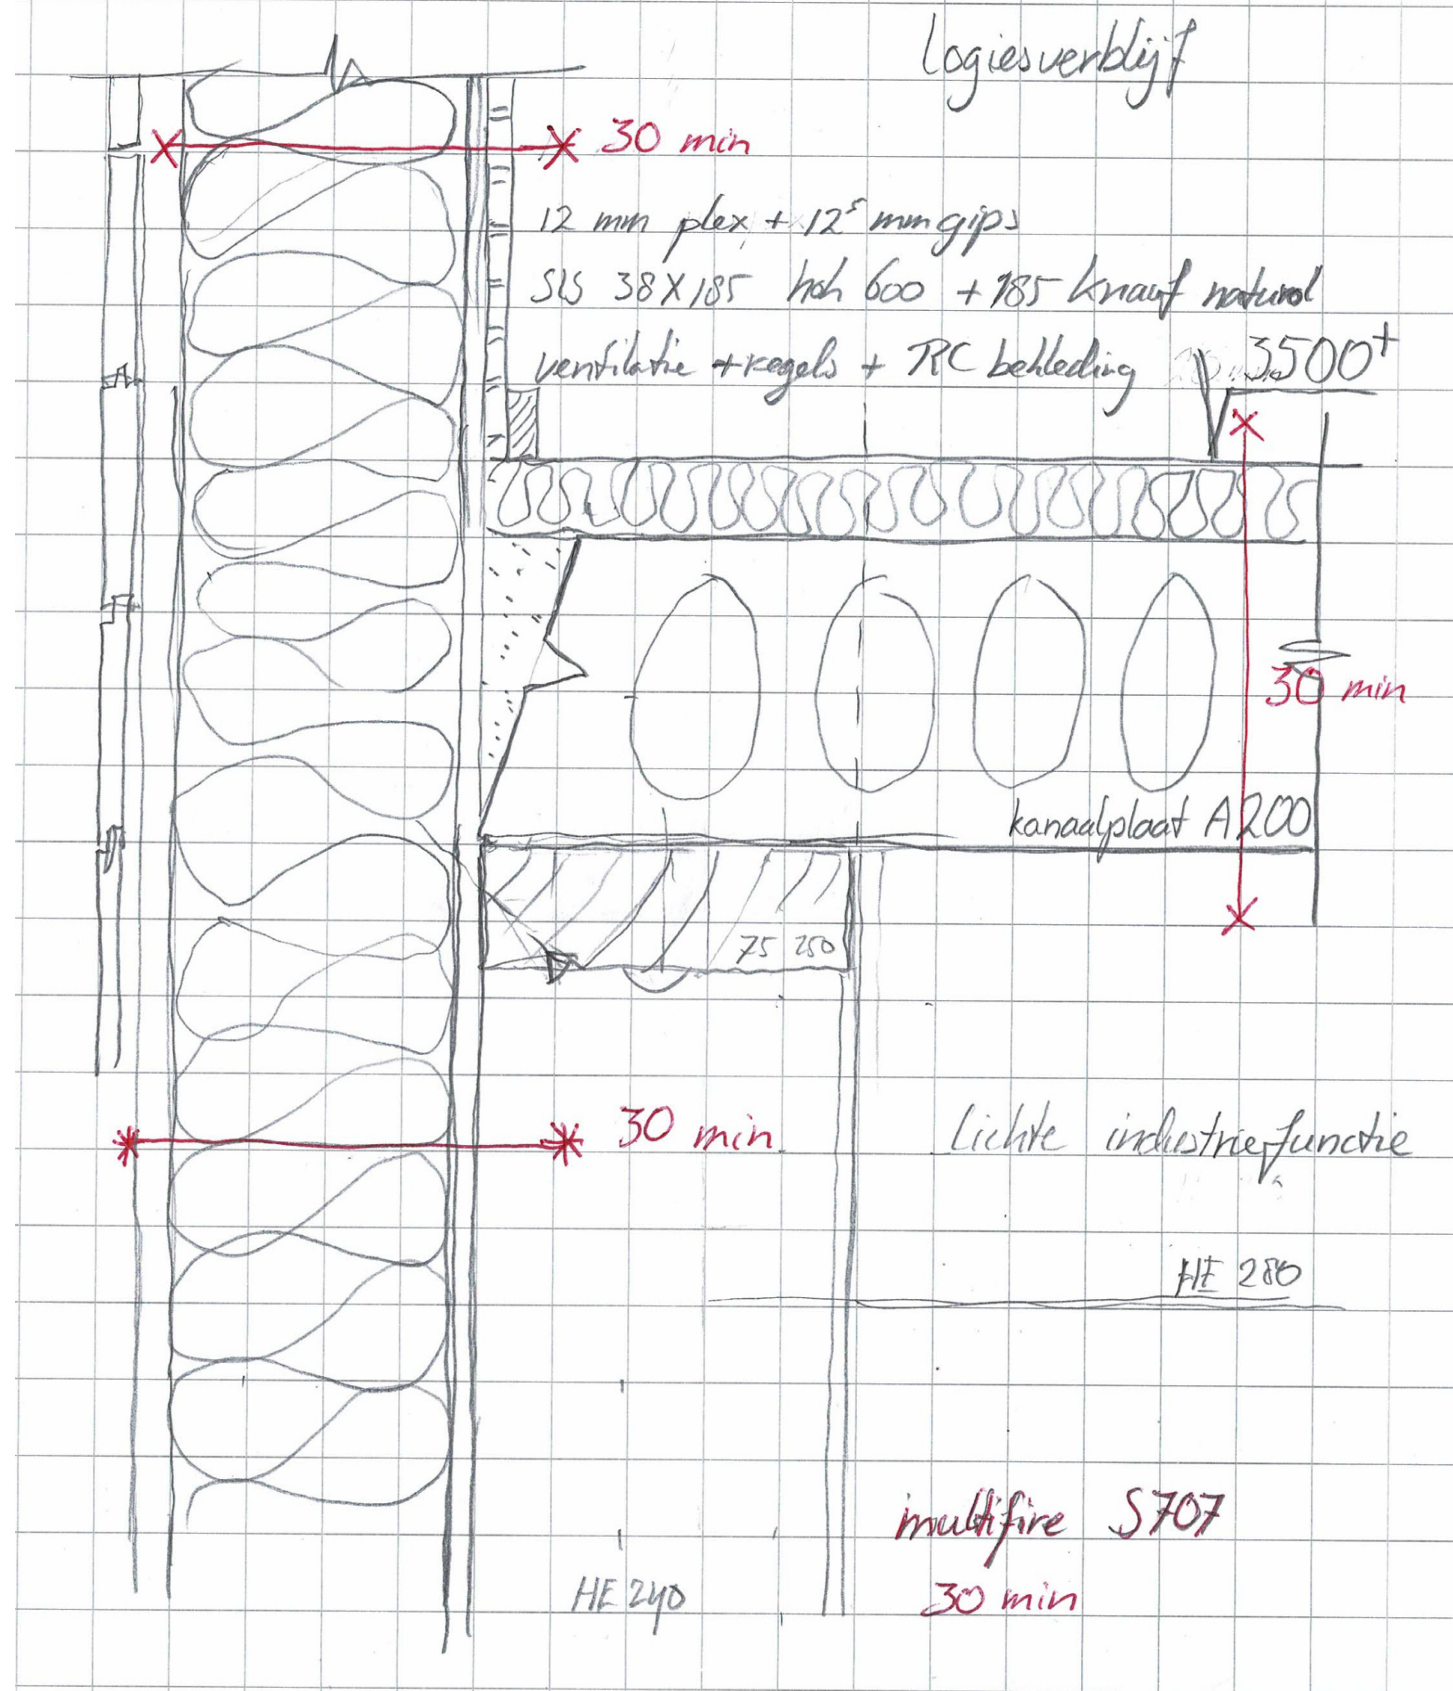 logiesverblijf
30 min
12 mm plex + 12⁵ mm gips
SLS 38X185 hoh 600 + 185 knauf natural
ventilatie + regels + RC bekleding
3500+
30 min
kanaalplaat A200
75 250
30 min.
lichte industriefunctie
HE 280
multifire S707
HE 240
30 min